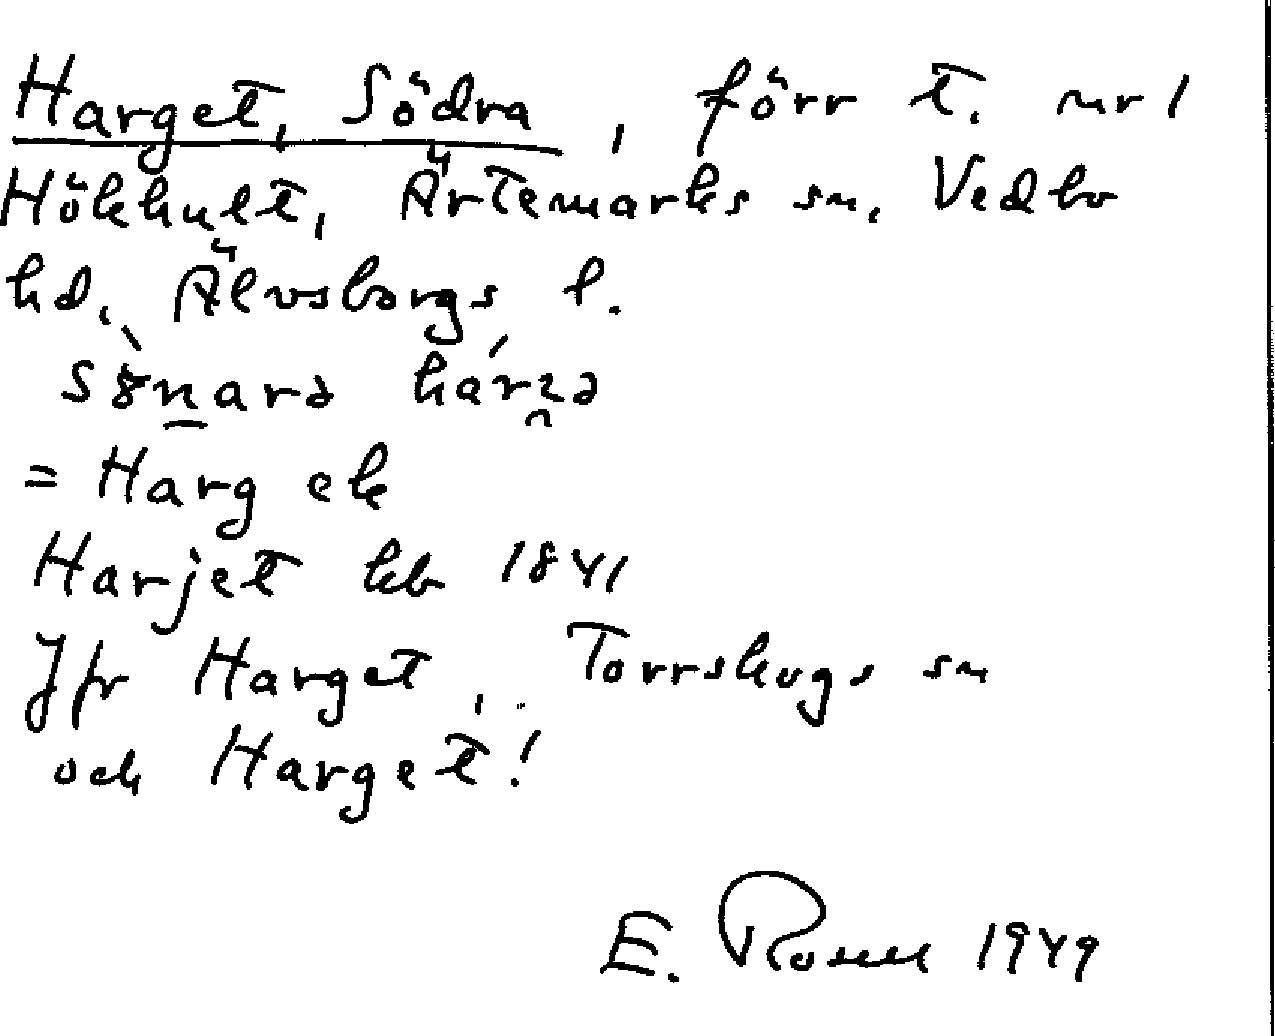 Harget, Södra, förr t. nr 1
Hökhult, Ärtemarks sn, Vedbo
hd, Älvsborgs l.
= Harg ek
Harjet kb 1841
Jfr Harget, Torrskogs sn
och Harget!
E. Rosell 1949